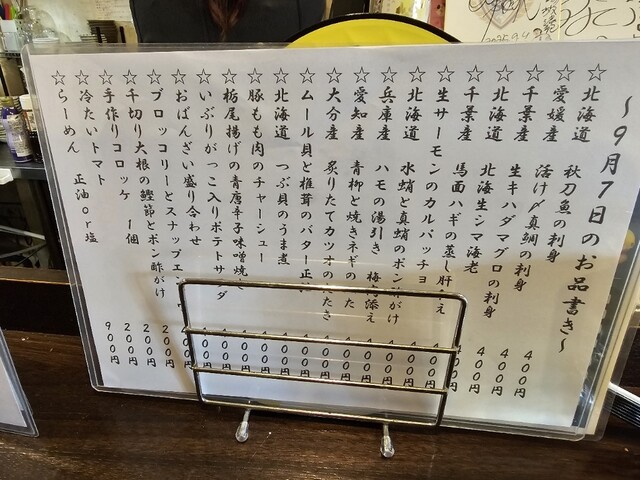 ～９月７日のお品書き～
☆北海道 秋刀魚の刺身
☆愛媛産 活け〆真鯛の刺身 ４００円
☆千葉産 生キハダマグロの刺身 ４００円
☆北海道 北海生シマ海老 ４００円
☆千葉産 馬面ハギの蒸し肝 え ４００円
☆生サーモンのカルパッチョ
☆北海道 水蛸と真蛸のポン がけ
☆兵庫産 ハモの湯引き 梅 添え
☆愛知産 青柳と焼きネギの た
☆大分産 炙りたてカツオの たき
☆ムール貝と椎茸のバター正
☆北海道 つぶ貝のうま煮
☆豚もも肉のチャーシュー
☆栃尾揚げの青唐辛子味噌焼
☆いぶりがっこ入りポテトサ ダ
☆おばんざい盛り合わせ
☆ブロッコリーとスナップエ ２００円
☆千切り大根の鰹節とポン酢がけ ２００円
☆手作りコロッケ １個 ２００円
☆冷たいトマト ２００円
☆らーめん 正油ｏｒ塩 ９００円
２０２５．９．４